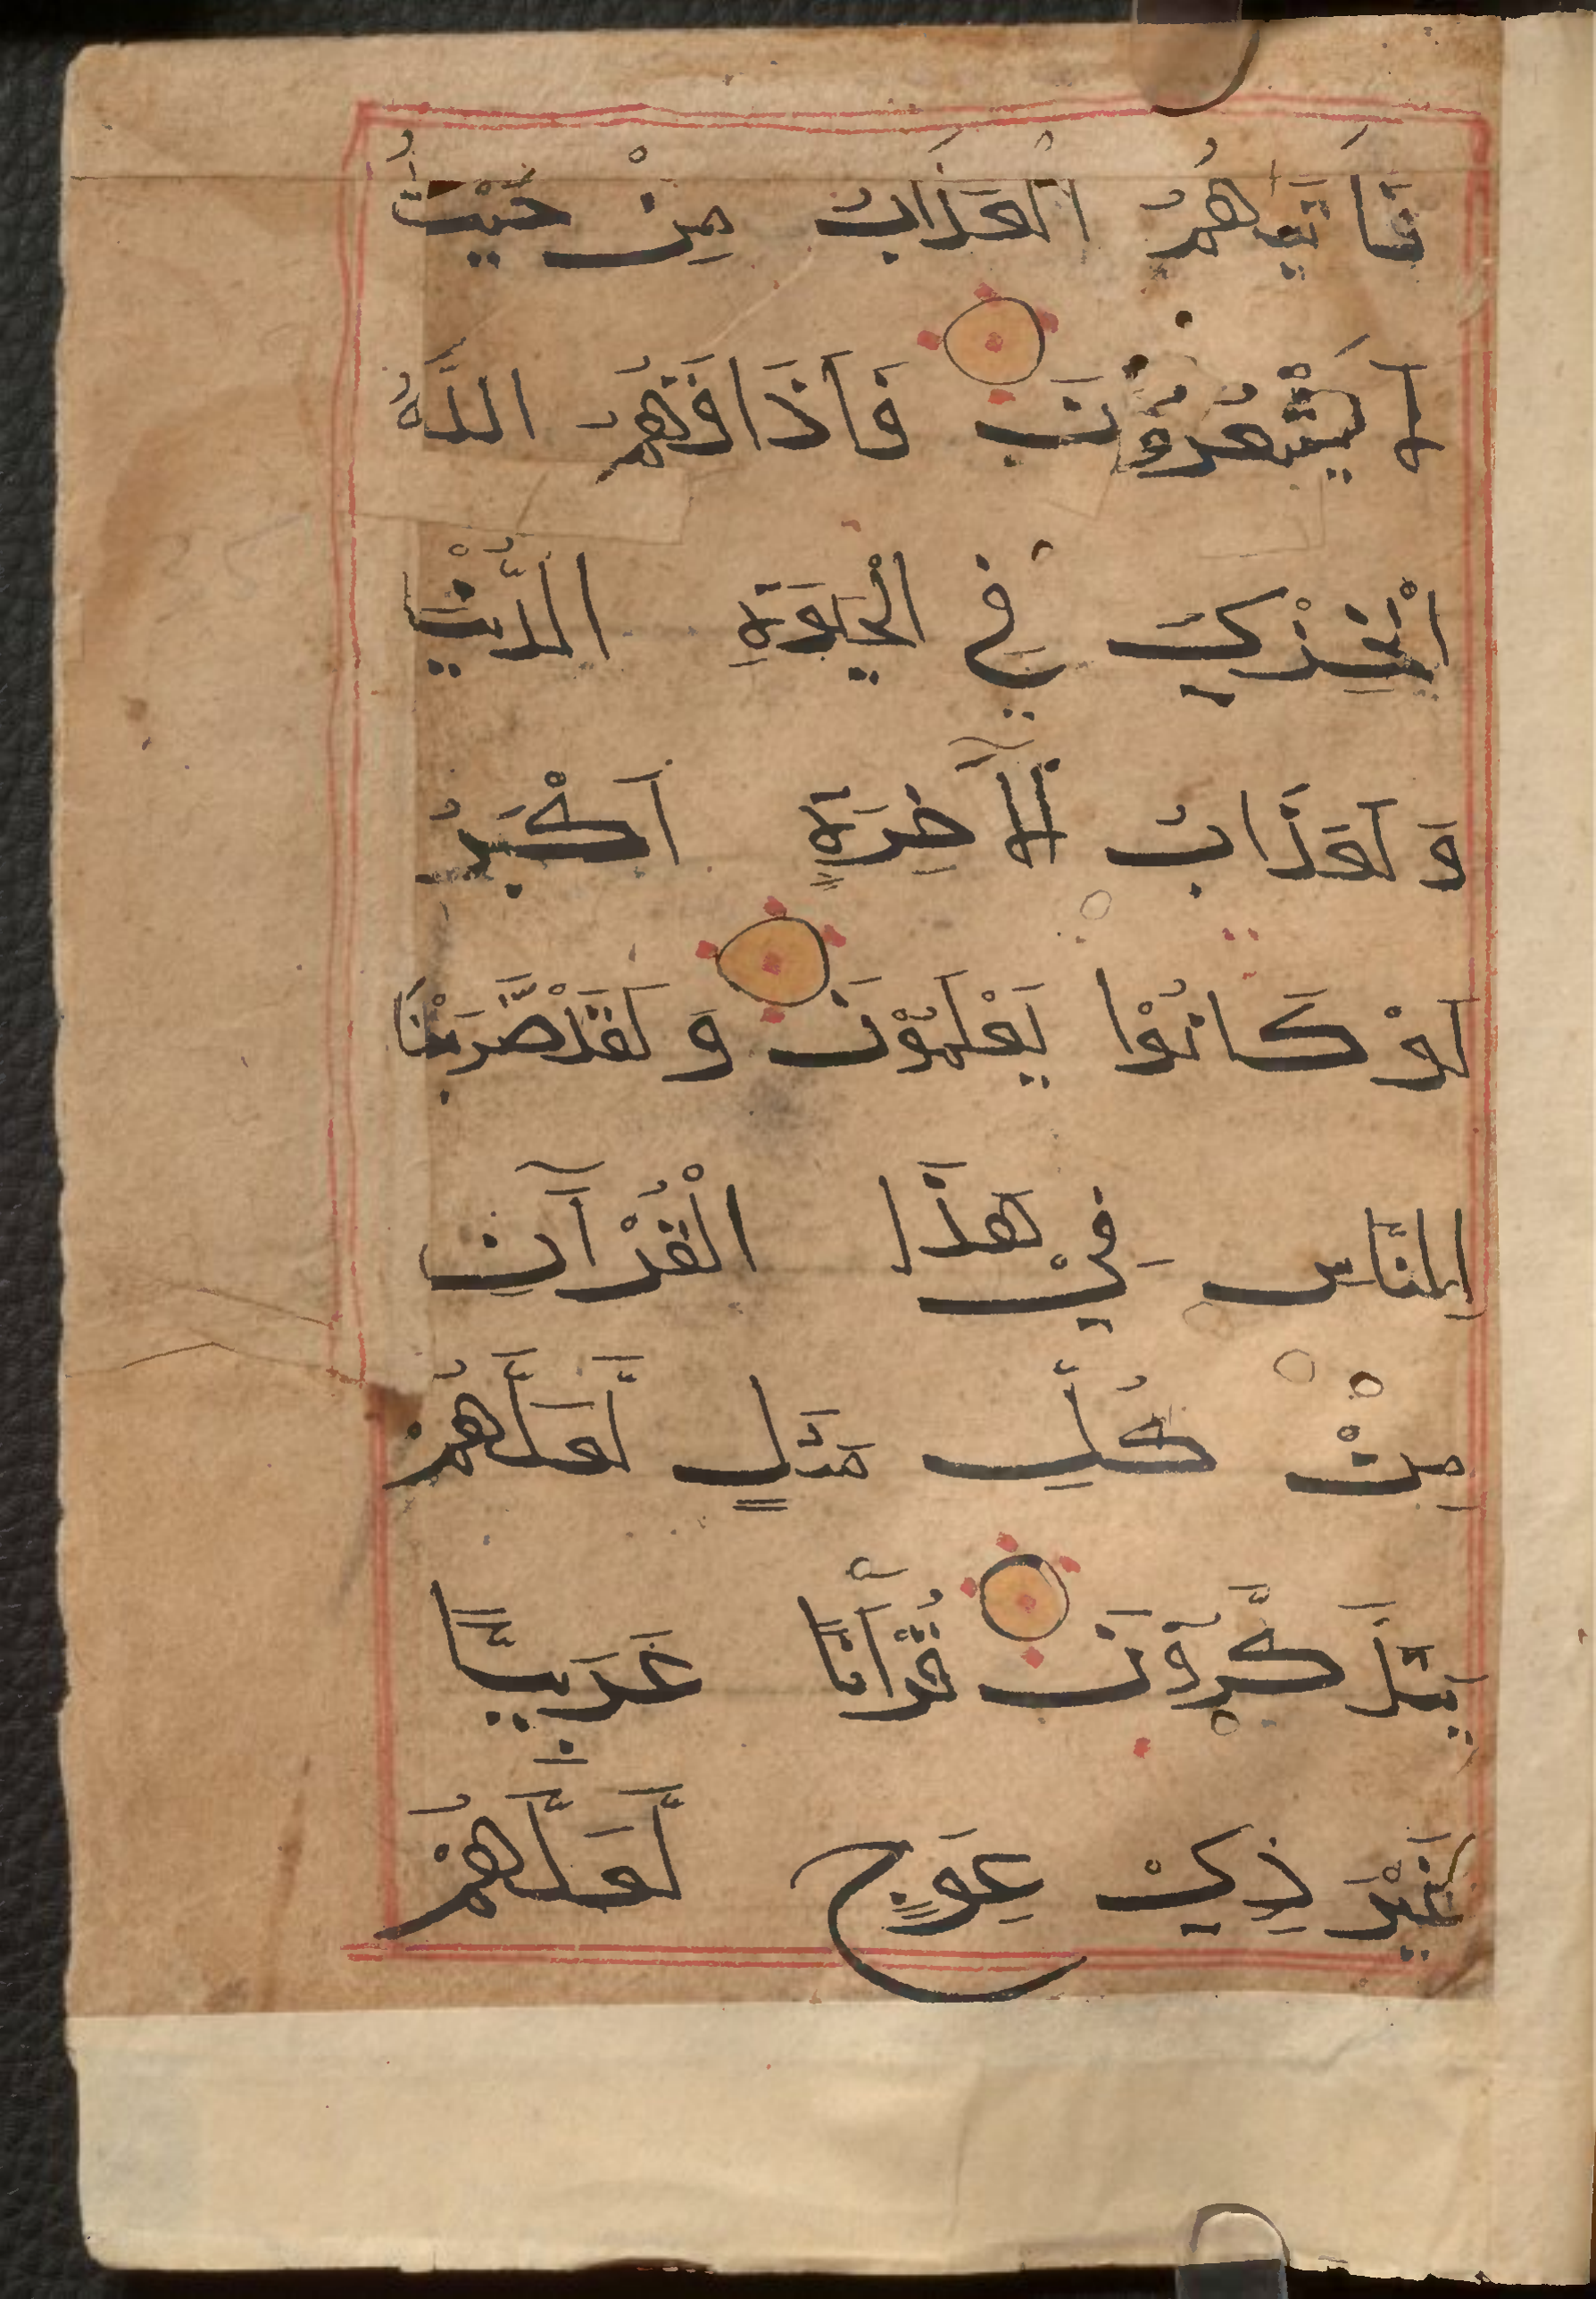 فَاَتٰیهُمُ الْعَذَابُ مِنْ حَیْثُ
لَا یَشْعُرُوْنَ فَاَذَاقَهُمُ اللّٰهُ
الْخِزْیَ فِی الْحَیٰوةِ الدُّنْیَا
وَ لَعَذَابُ الْاٰخِرَةِ اَكْبَرُ
لَوْ كَانُوْا یَعْلَمُوْنَ وَ لَقَدْ ضَرَبْنَا
لِلنَّاسِ فِیْ هٰذَا الْقُرْاٰنِ
مِنْ كُلِّ مَثَلٍ لَّعَلَّهُمْ
یَتَذَكَّرُوْنَ قُرْاٰنًا عَرَبِیًّا
غَیْرَ ذِیْ عِوَجٍ لَّعَلَّهُمْ